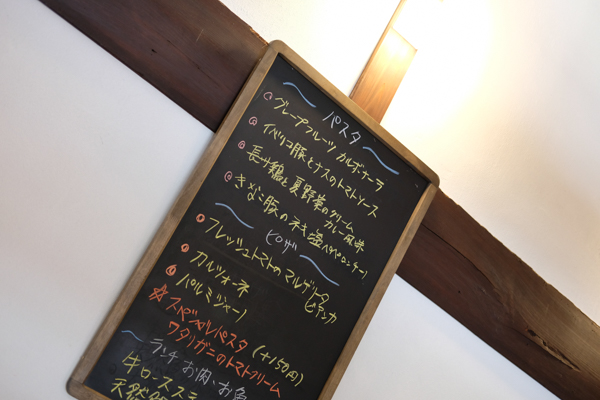 パスタ
グレープフルーツ カルボナーラ
イベリコ豚とナスのトマトソース
長州鶏と夏野菜のクリーム
カレー風味
きなこ豚の
ペペロンチーノ
ピザ
フレッシュトマトのマルゲリータ
ビアンカ
カルツォーネ
パルミジャーノ
☆スペシャルパスタ (+150円)
ワタリガニのトマトクリーム
ランチ お肉・お魚
牛ロースステ
天然